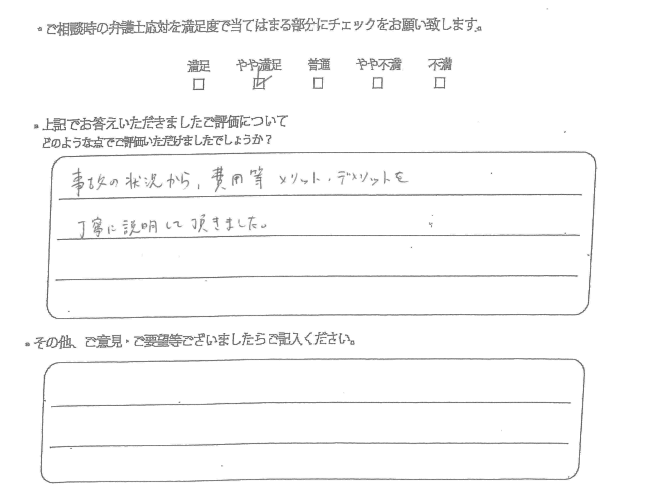 ・ご相談時の弁護士応対を満足度で当てはまる部分にチェックをお願い致します。
満足 やや満足 普通 やや不満 不満
□ ☑ □ □ □
・上記でお答えいただきましたご評価について
どのような点でご評価いただけましたでしょうか？
事故の状況から、費用等 メリット・デメリットを
丁寧に説明して頂きました。
・その他、ご意見・ご要望等ございましたらご記入ください。